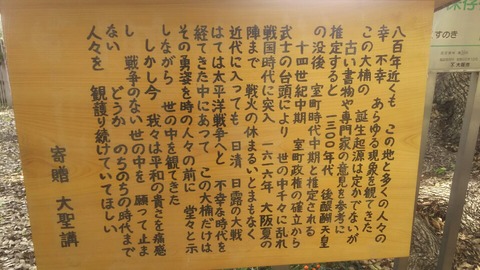 八百年近くも この地と多くの人々の
幸 不幸 あらゆる現象を観てきた
この大楠の 誕生起源は定かでないが
古い書物や専門家の意見を参考に
推定すると 一三〇〇年代 後醍醐天皇
の没後 室町時代中期と推定される
十四世紀中期 室町政権の確立から
武士の台頭により 世の中千々に乱れ
戦国時代に突入 一六一六年 大阪夏の
陣まで 戦火の休まるいとまもなく
近代に入っても 日清 日露の大戦
はては太平洋戦争へと 不幸な時代を
経てきた中にあって この大楠だけは
その勇姿を時の人々の前に 堂々と示
しながら 世の中を観てきた
しかし今 我々は平和の貴さを痛感
し 戦争のない世の中を 願って止ま
ない どうか のちのちの時代まで
人々を 観護り続けていてほしい
寄贈 大聖講
保存
すのき